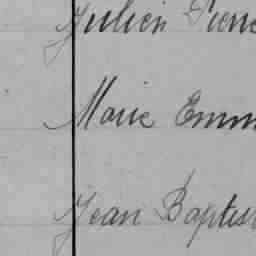 Julien Pierre
Marie Emm
Jean Baptis